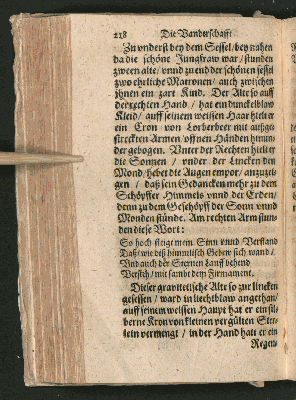 218 Die Wanderschafft
Zu vnderst bey dem Sessel / bey nahen
da die schöne Jungfraw war / stunden
zween alte / vnnd zu end der schönen sessel
zwo ehrliche Matronen / auch zwischen
jhnen ein zart Kind. Der Alte so auff
der rechten Hand / hat ein dunckelblaw
Kleid / auff seinem weissen Haar hielt er
ein Cron von Lorbeerbeer mit auffge-
streckten Armen / offnen Händen hinun-
der gebogen. Vnter der Rechten hielt er
die Sonnen / vnder der Lincken den
Mond / hebet die Augen empor / anzuzei-
gen / daß sein Gedancken mehr zu dem
Schöpffer Himmels vnnd der Erden /
denn zu dem Geschöpff der Sonn vnnd
Monden stünde. Am rechten Arm stun-
den diese Wort:
So hoch steigt mein Sinn vnnd Verstand
Daß / wie diß himmlisch Gebew sich wand /
Vnd auch der Sternen Lauff behend
Versteh / mit sambt dem Firmament.
Dieser gravitetische Alte so zur lincken
gesessen / ward in liechtblaw angethan /
auff seinem weissen Haupt hat er ein sil-
berne Kron von kleinen vergülten Ster-
lein vermengt / in der Hand halt er ein
Regen-